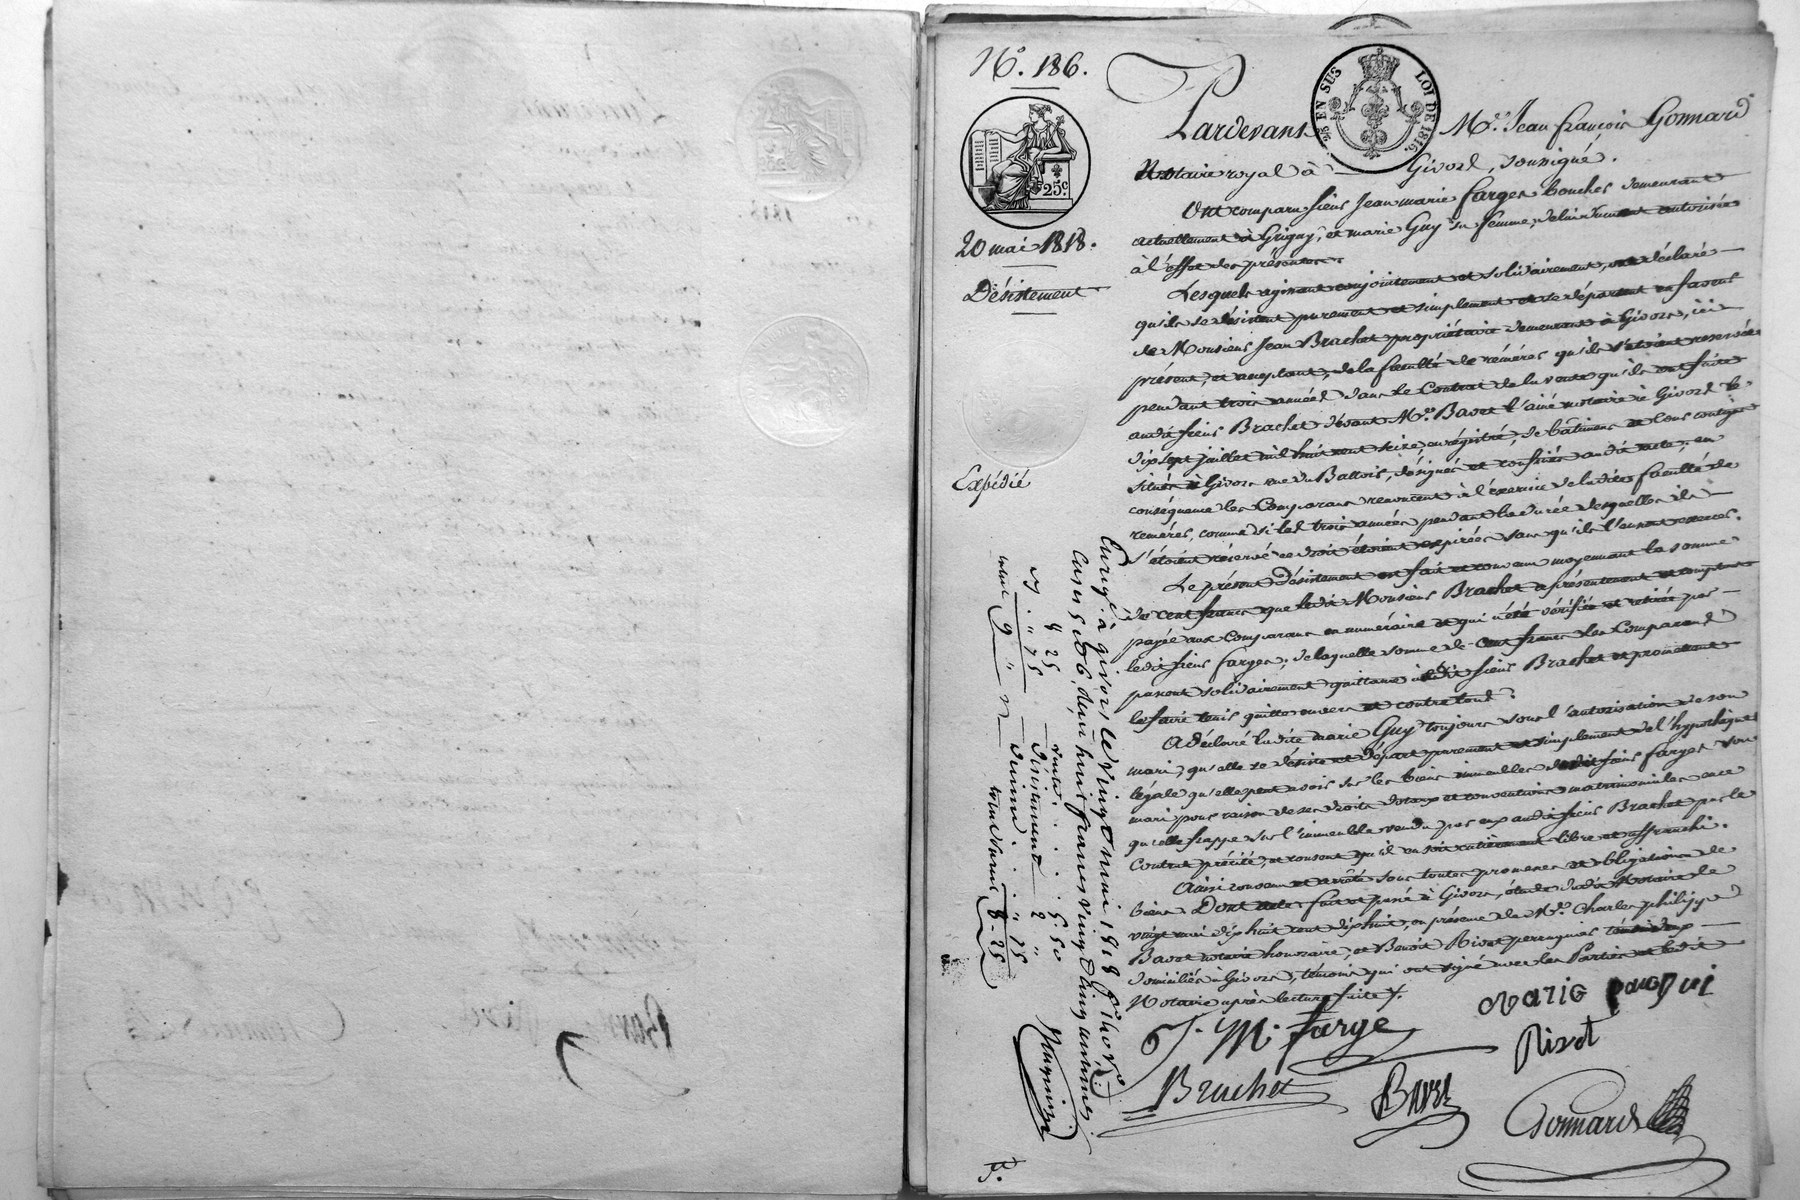 N.º 186.
25 EN SUS LOI DE 1816.
25 c.
20 mai 1818.
Désistement
Expédié
Pardevant M.e Jean François Gonnard
Notaire royal à Givors, soussigné.
Ont comparu sieur Jean marie Farges boucher demeurant
actuellement à Grigny, et marie Guy sa femme, de lui dument autorisée
à l'effet des présentes.
Lesquels agissant conjointement et solidairement, ont déclaré
qu'ils se désistent purement et simplement et se départent en faveur
de Monsieur Jean Brachet propriétaire demeurant à Givors, ici
présent, et acceptant, de la faculté de réméré qu'ils s'étoient reservée
pendant trois années dans le Contrat de la vente qu'ils ont faite
audit sieur Brachet devant M.e Bavot l'ainé notaire à Givors le
dix sept juillet mil huit cent seize, enregistré, de bâtimens et lieux contigus
situés à Givors rue du Battois, désignés et confinés audit acte; en
conséquence les Comparans renoncent à l'exercice de ladite faculté de
reméré, comme si les trois années pendant la durée desquelles ils
s'étoient réservé ce droit étoient expirées sans qu'ils l'eussent exercé.
Le présent désistement est fait et convenu moyennant la somme
de cent francs que ledit Monsieur Brachet a présentement et comptant
payée aux Comparans en numéraire et qui a été vérifiée et retirée par
ledit sieur Farges; de laquelle somme de cent francs les Comparans
passent solidairement quittance audit sieur Brachet et promettent
le faire tenir quitte envers et contre tous.
A déclaré ladite marie Guy toujours sous l'autorisation de son
mari, qu'elle se désiste et départ purement et simplement de l'hypothèque
légale qu'elle peut avoir sur les biens immeubles dudit sieur farges son
mari pour raison de ses droits dotaux et conventions matrimoniales en ce
qu'elle frappe sur l'immeuble vendu par eux audit sieur Brachet par le
Contrat précité, et consent qu'il en soit entièrement libre et affranchi.
Ainsi convenu et arrêté sous toutes promesses et obligations de
biens. Dont acte, fait et passé à Givors, étude dudit Notaire le
vingt mai dix huit cent dix huit, en présence de M.e Charles philippe
Bavot notaire honoraire, et Benoit Rivot perruquier tous deux
domiciliés à Givors, témoins qui ont signé avec les Parties et ledit
Notaire après lecture faite.
marie
J. M. farge
Rivot
Brachet
Bavot
Gonnard
Enreg.é à givors le vingt mai 1818 f.o
Cases 5 et 6, deux huit francs vingt cinq centimes
vente 5. 50
Désistement 2 "
Décime " 75
8 - 25
8 25
" 75
9 "